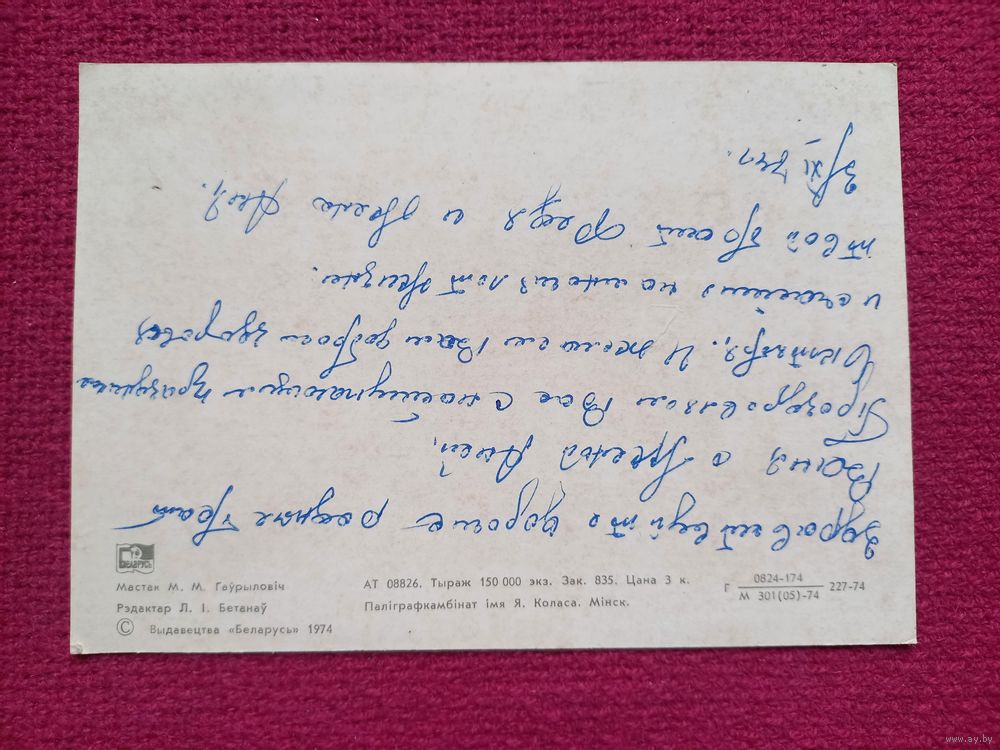 здравствуйте дорогие родные брат
Ваня с женой Аней.
Проздровляем Вас с наступающем праздником
Октября. И желаем Вам доброго здоровья
и счастья на многих лет жизни.
твой брат Федя и жена
3/XI 74г.
БЕЛАРУСЬ
Мастак М. М. Гаўрыловіч
Рэдактар Л. І. Бетанаў
© Выдавецтва «Беларусь» 1974
АТ 08826. Тыраж 150 000 экз. Зак. 835. Цана 3 к.
Паліграфкамбінат імя Я. Коласа. Мінск.
Г 0824-174 / М 301(05)-74 227-74
www.ay.by